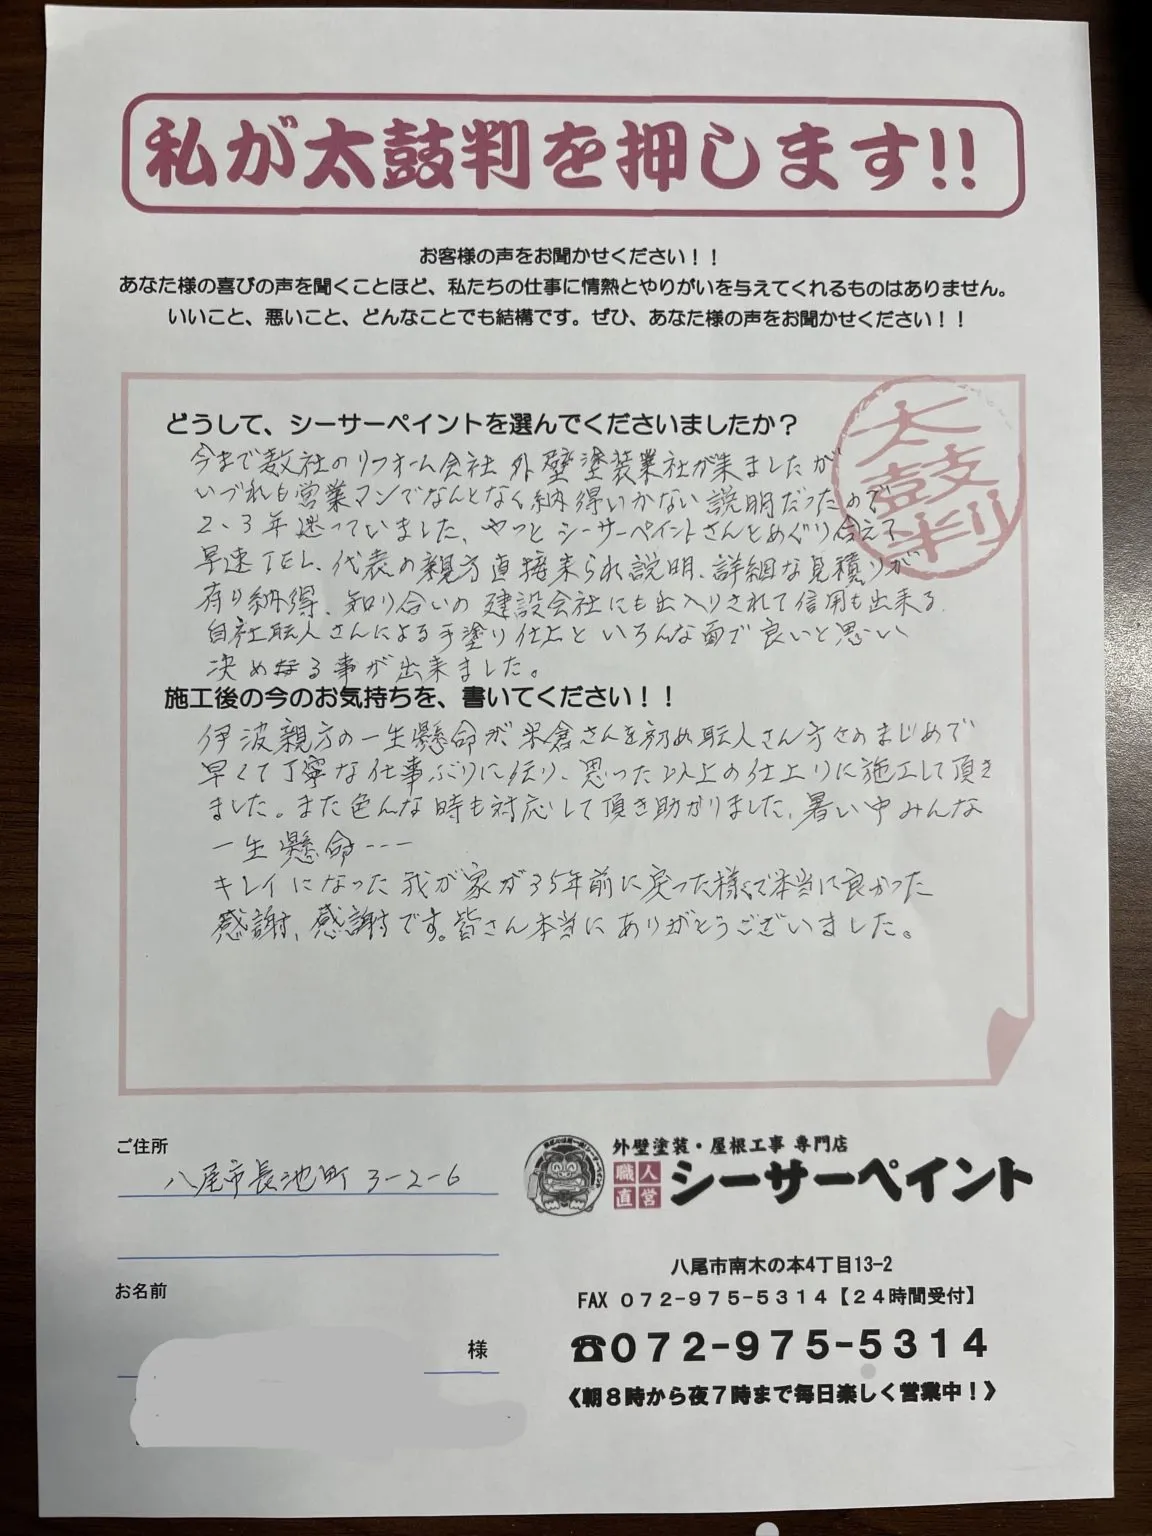 私が太鼓判を押します!!
お客様の声をお聞かせください！！
あなた様の喜びの声を聞くことほど、私たちの仕事に情熱とやりがいを与えてくれるものはありません。
いいこと、悪いこと、どんなことでも結構です。ぜひ、あなた様の声をお聞かせください！！
太鼓判
どうして、シーサーペイントを選んでくださいましたか？
今まで数社のリフォーム会社 外壁塗装業社が来ましたが
いづれも営業マンでなんとなく納得いかない説明だったので
2、3年迷っていました、やっとシーサーペイントさんとめぐり合えて
早速TEL、代表の親方直接来られ説明、詳細な見積りが
有り納得、知り合いの建設会社にも出入りされて信用も出来る
自社職人さんによる手塗り仕上といろんな面で良いと思い
決める事が出来ました。
施工後の今のお気持ちを、書いてください！！
伊波親方の一生懸命が米倉さんを初め職人さん方々のまじめで
早くて丁寧な仕事ぶりに伝り、思った以上の仕上りに施工して頂き
ました。また色んな時も対応して頂き助かりました、暑い中みんな
一生懸命---
キレイになった我が家が35年前に戻った様で本当に良かった
感謝、感謝です。皆さん本当にありがとうございました。
ご住所
八尾市長池町 3-2-6
お名前
様
外壁塗装・屋根工事 専門店
職人直営 シーサーペイント
八尾市南木の本4丁目13-2
FAX 072-975-5314【24時間受付】
☎072-975-5314
《朝8時から夜7時まで毎日楽しく営業中！》